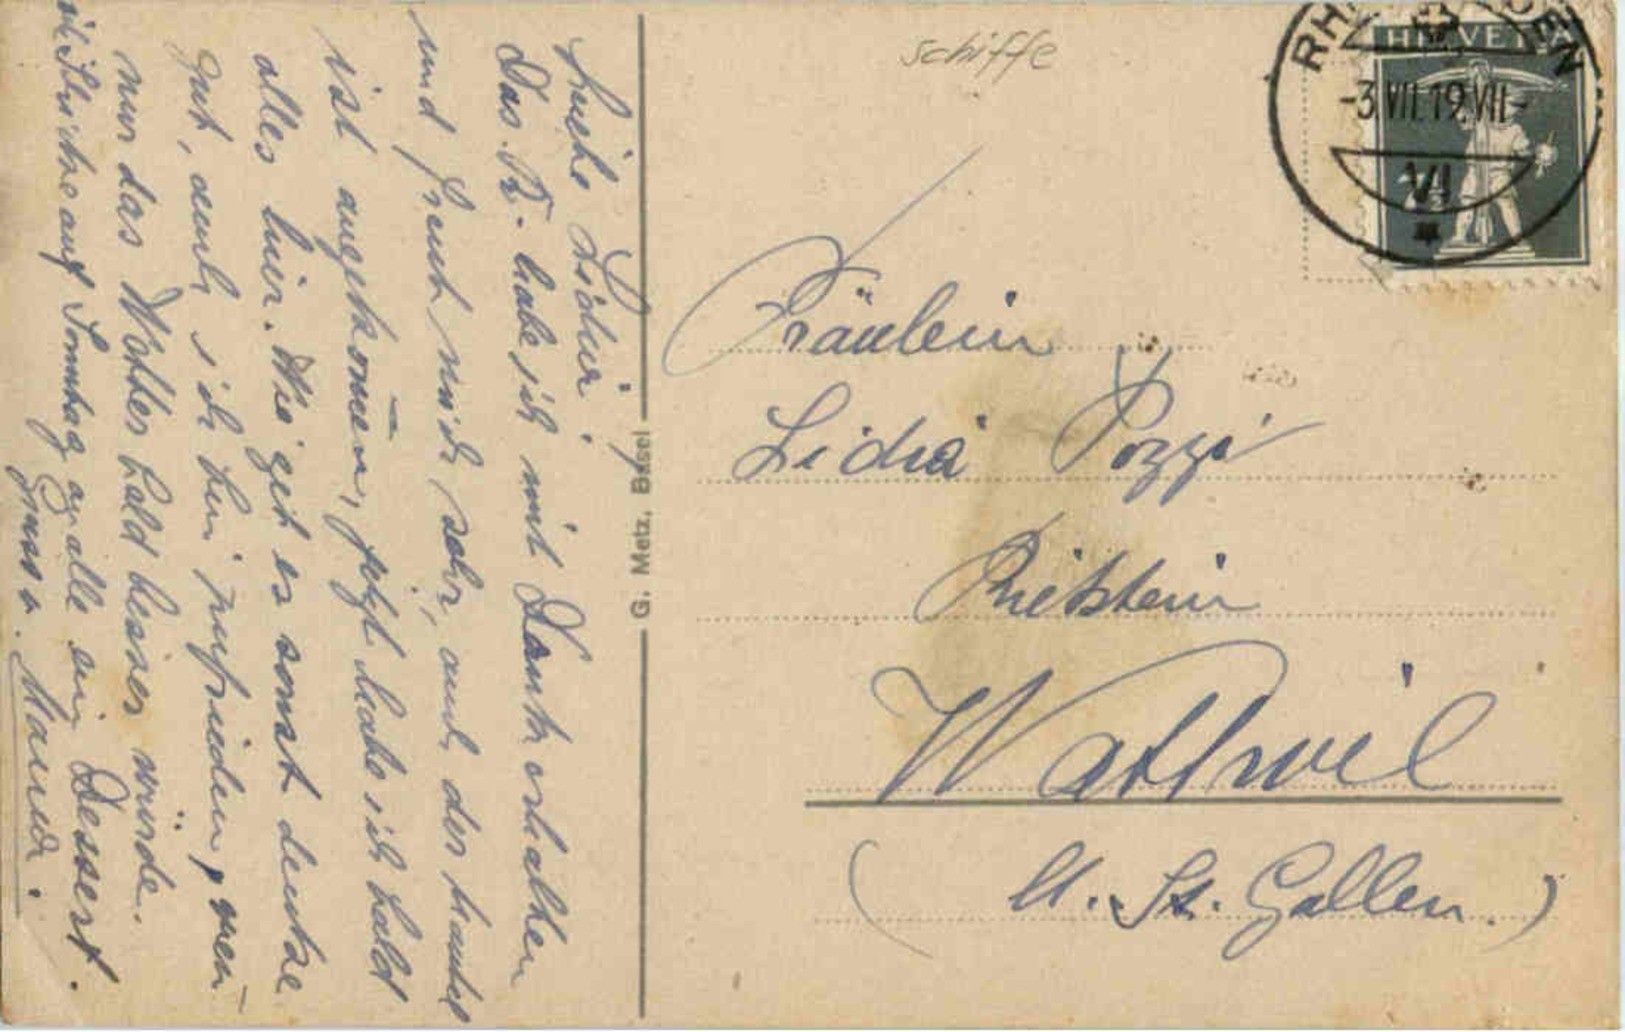 Liebe Lidia!
Das P. habe ich mit Dank erhalten
und freut mich sehr, auch der Mantel
ist angekom̄en, jetzt habe ich bald
alles hier. Wie geht es sonst denke
gut, auch ich bin zufrieden, wen̄
nur das Wetter bald besser würde.
ich
auf Sonntag
alle ein Dessert.
Gruss v. Maria.
G. Metz, Basel
schiffe
HELVETIA
-3.VII.19.VII-
VI
Fräulein
Lidia Pozzi
Rietstein
Wattwil
(Kt. St. Gallen.)